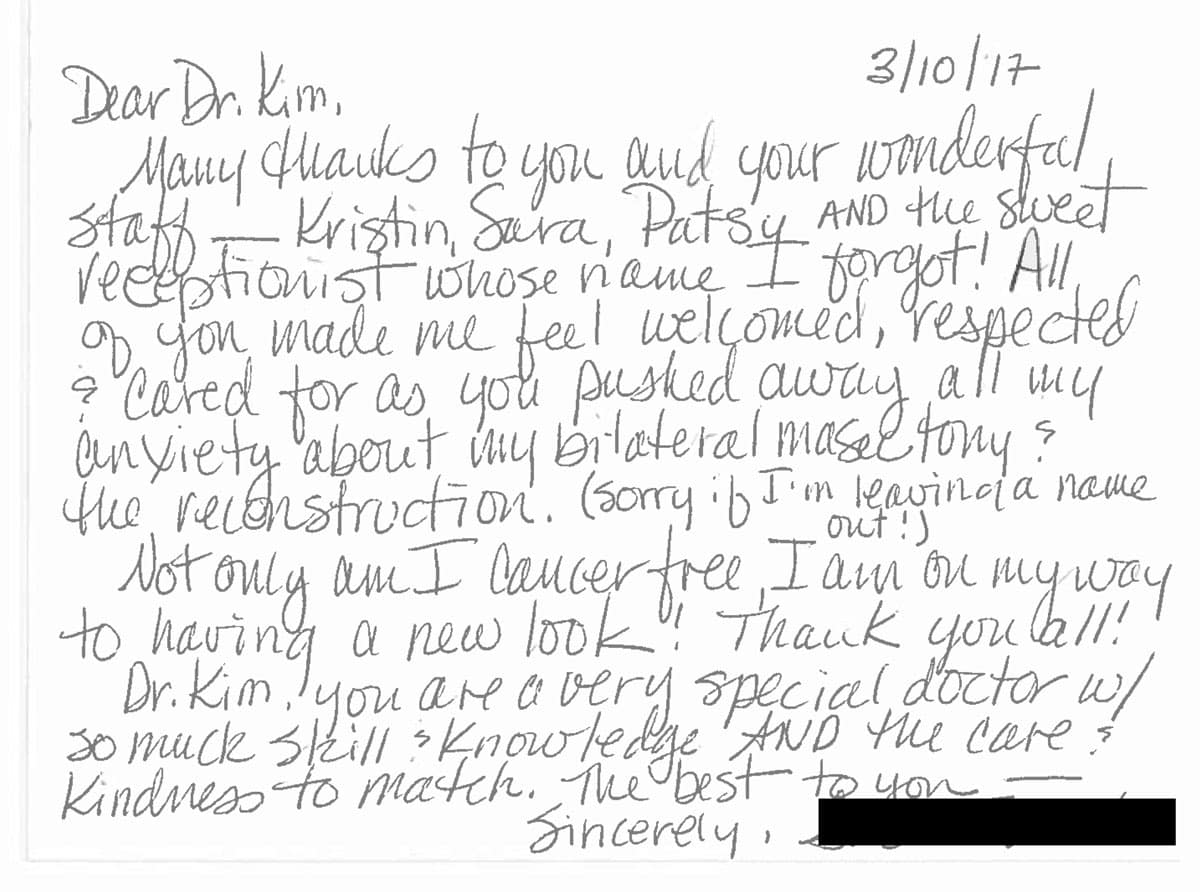 3/10/17
Dear Dr. Kim,
Many thanks to you and your wonderful
staff — Kristin, Sara, Patsy AND the sweet
receptionist whose name I forgot! All
of you made me feel welcomed, respected
& cared for as you pushed away all my
anxiety about my bilateral masectomy &
the reconstruction. (Sorry if I'm leaving a name
out!)
Not only am I cancer free, I am on my way
to having a new look! Thank you all!
Dr. Kim, you are a very special doctor w/
so much skill & knowledge AND the care &
kindness to match. The best to you —
Sincerely,